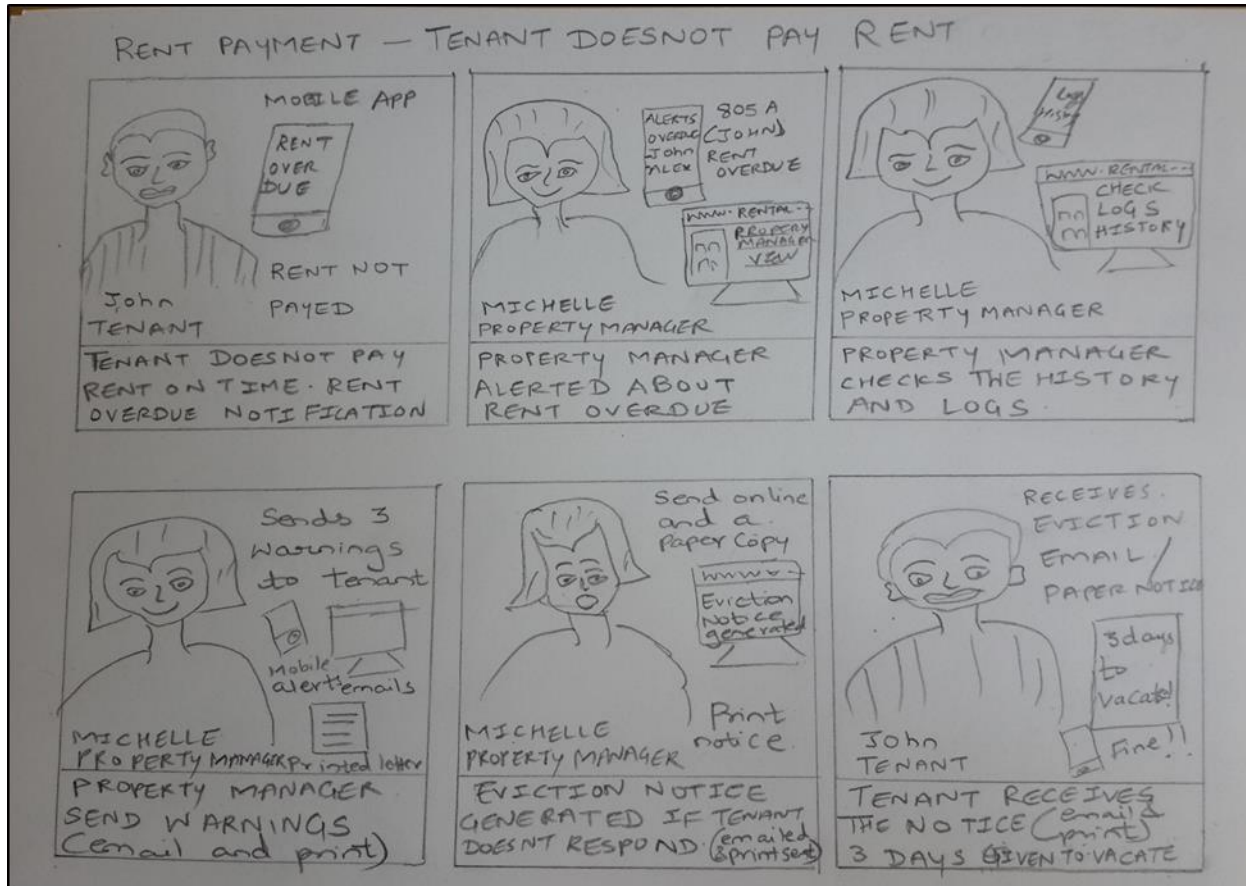 RENT PAYMENT — TENANT DOESNOT PAY RENT
MOBILE APP
RENT
OVER
DUE
RENT NOT
PAYED
John
TENANT
TENANT DOESNOT PAY
RENT ON TIME. RENT
OVERDUE NOTIFICATION
ALERTS
OVERDUE
John
ALEX
805 A
(JOHN)
RENT
OVERDUE
WWW.RENTAL--
PROPERY
MANAGER
VIEW
MICHELLE
PROPERTY MANAGER
PROPERTY MANAGER
ALERTED ABOUT
RENT OVERDUE
Logs
WWW.RENTAL--
CHECK
LOGS
HISTORY
MICHELLE
PROPERTY MANAGER
PROPERTY MANAGER
CHECKS THE HISTORY
AND LOGS.
Sends 3
warnings
to tenant
Mobile
alerts
emails
MICHELLE
PROPERTY MANAGER
Printed letter
PROPERTY MANAGER
SEND WARNINGS
(email and print)
Send online
and a
Paper Copy
Eviction
Notice
generated
Print
notice.
MICHELLE
PROPERTY MANAGER
EVICTION NOTICE
GENERATED IF TENANT
DOESNT RESPOND. (emailed
& print sent)
RECEIVES
EVICTION
EMAIL /
PAPER NOTICE
3 days
to
vacate!
Fine!!
John
TENANT
TENANT RECEIVES
THE NOTICE (email &
print)
3 DAYS GIVEN TO VACATE